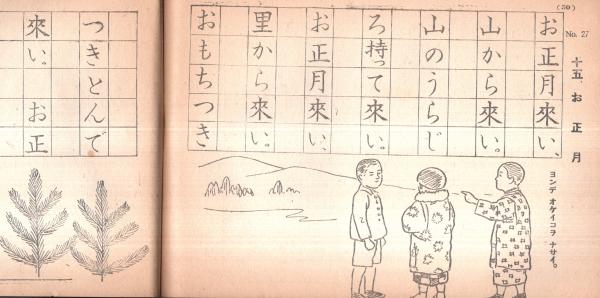 No. 27
十五、お正月
お正月來い、
山から來い。
山のうらじ
ろ持って來い。
お正月來い、
里から來い。
おもちつき
つきとんで
來い。お正
ヨンデ オケイコヲ ナサイ。